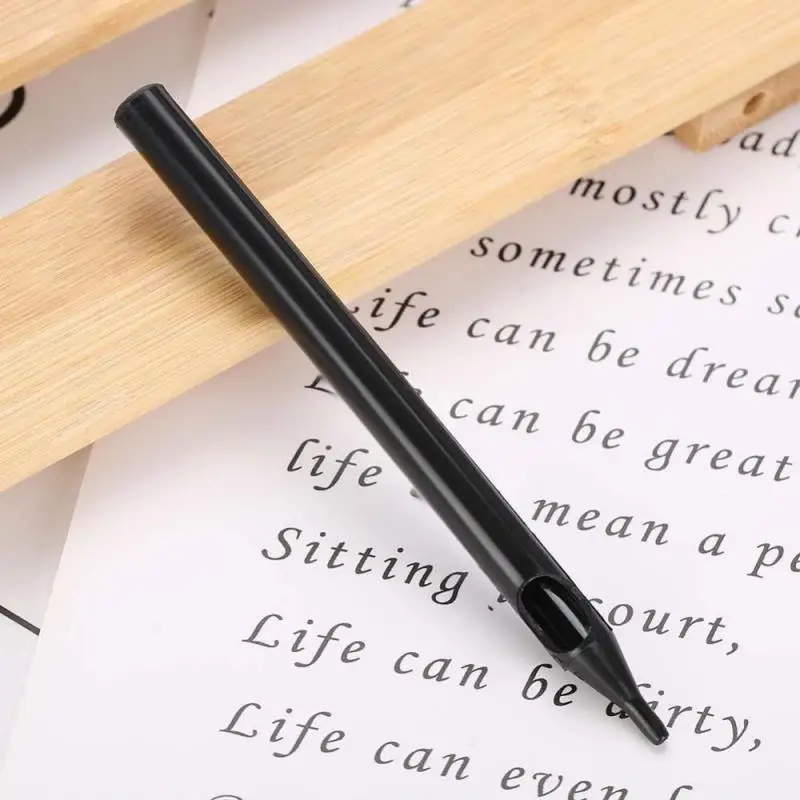 mostly
sometimes
Life can be
can be great
life mean a
Sitting court,
Life can be dirty,
Life can even